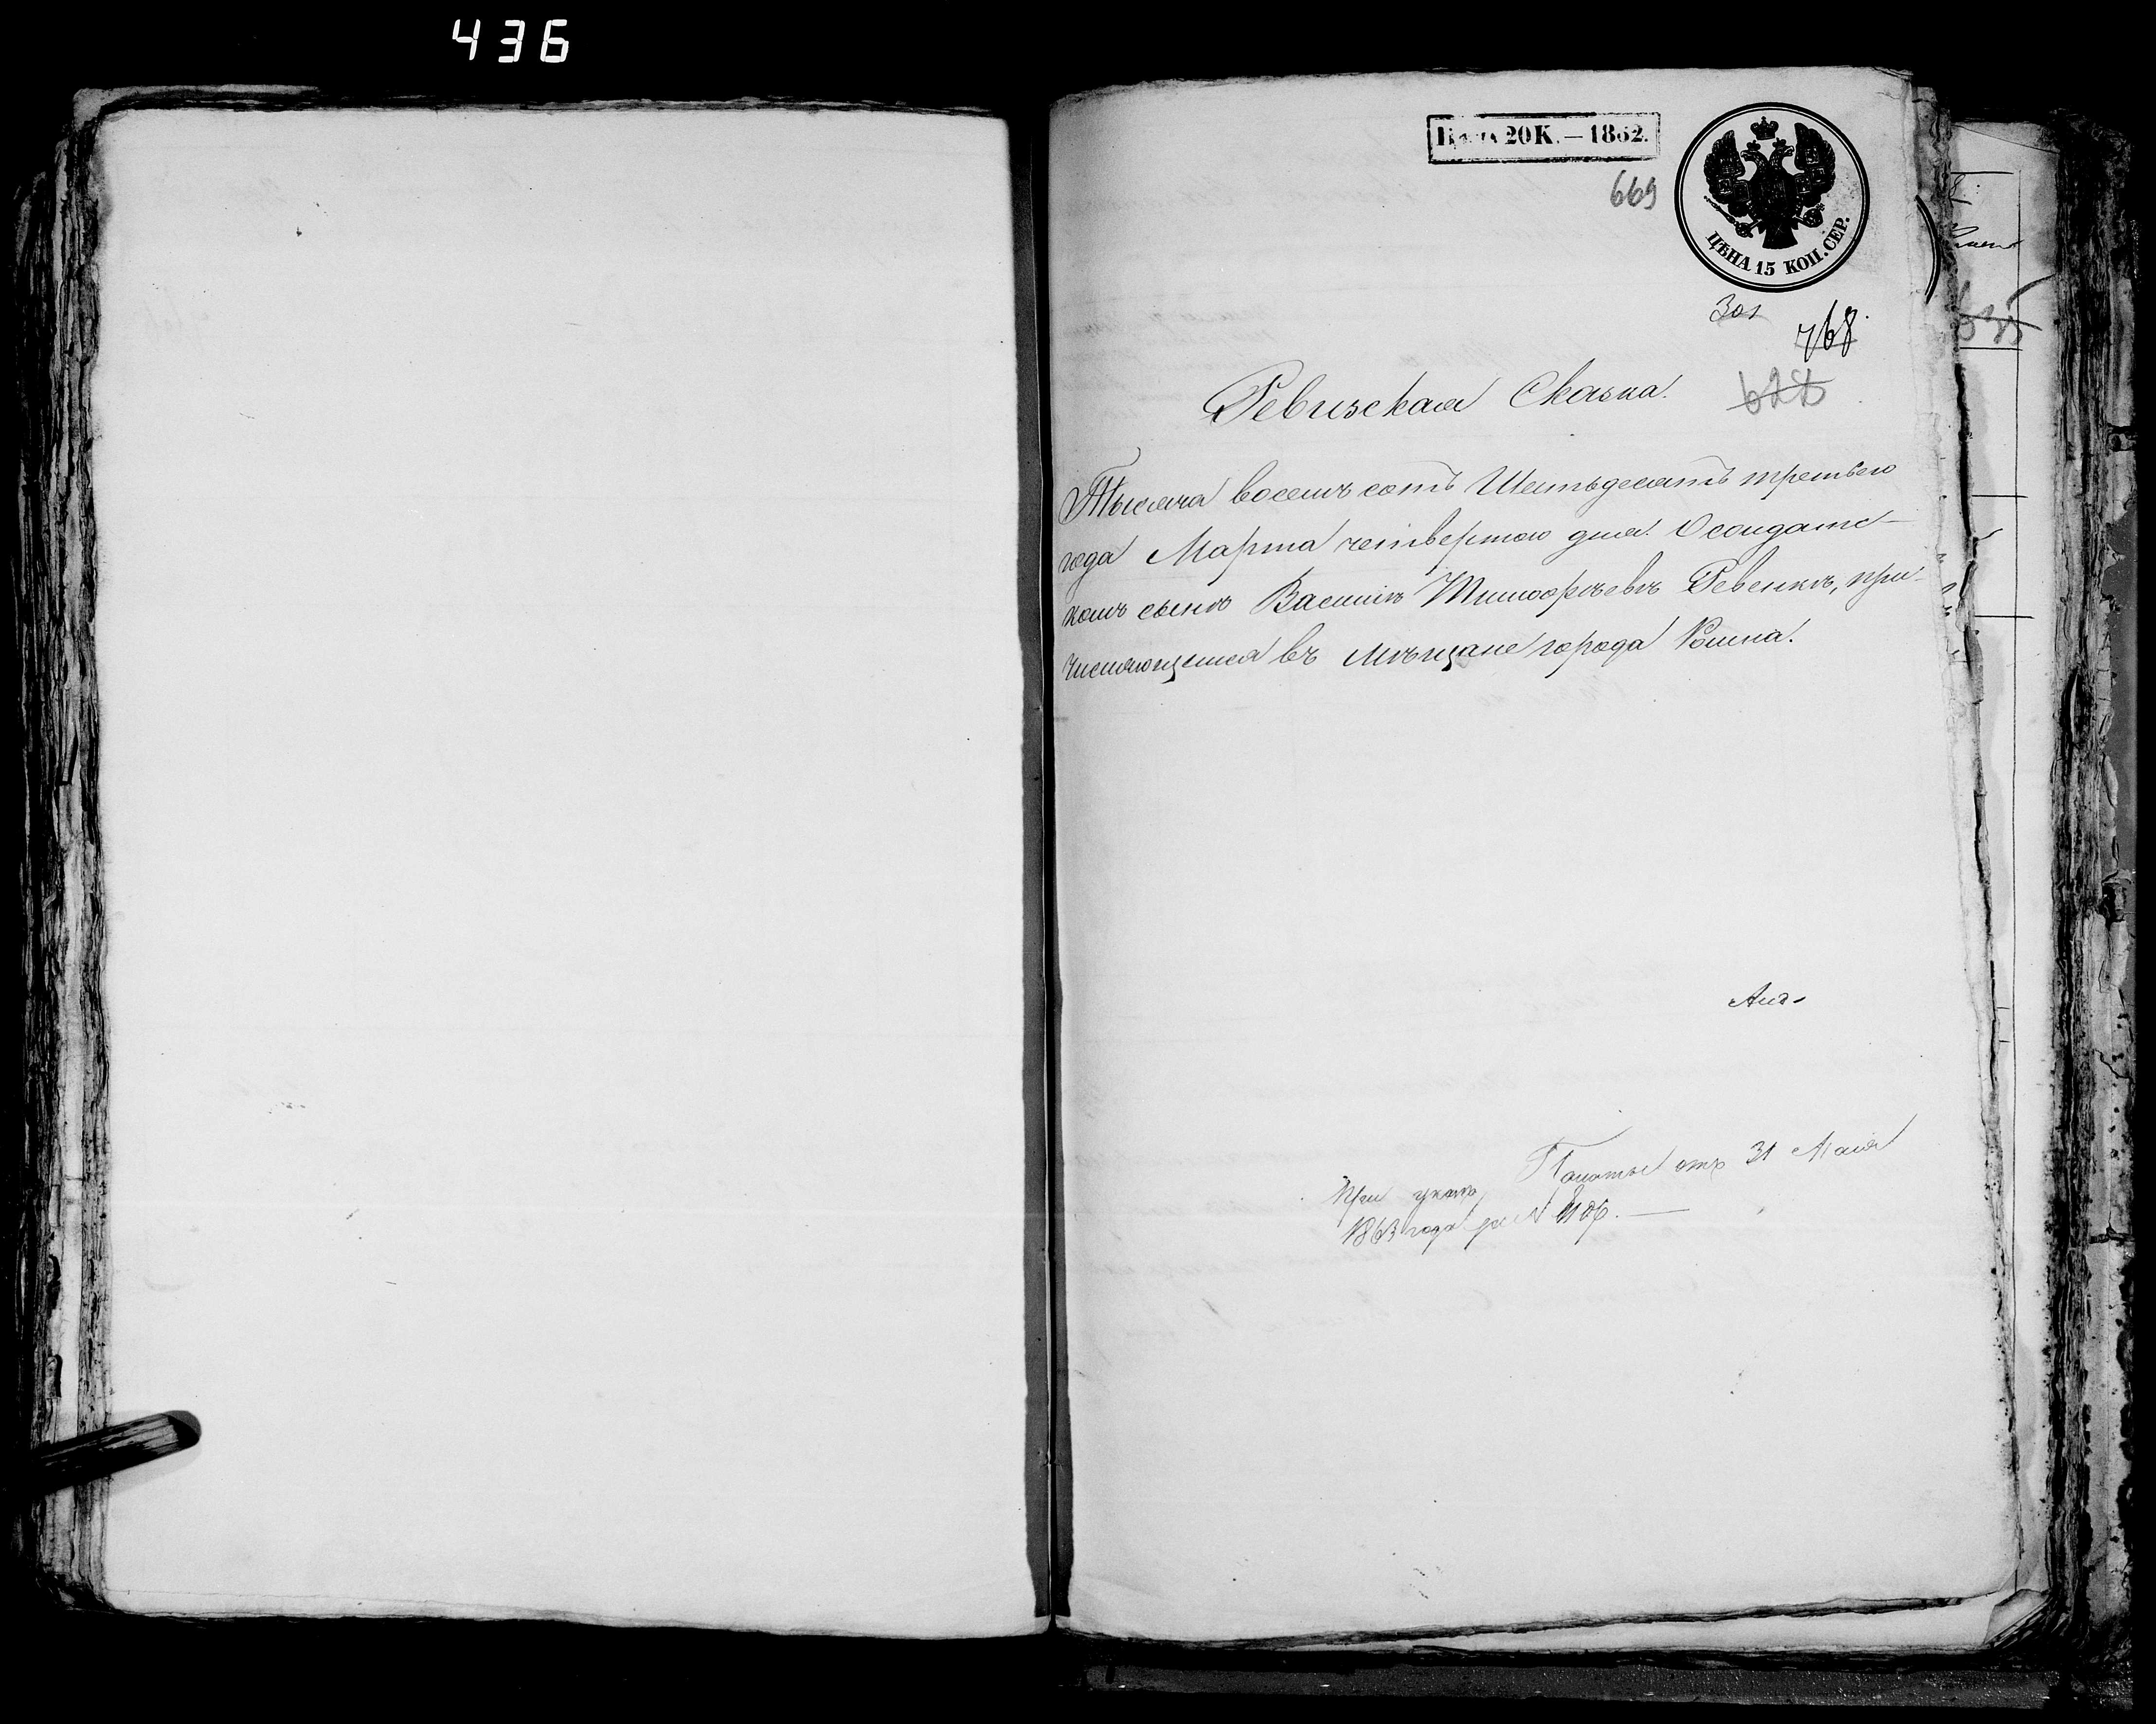 436
Цѣна 20 К. — 1862.
669
ЦѢНА 15 КОП. СЕР.
301
768
622
Ревизская Сказка.
Тысяча восемь сотъ Шестьдесятъ третьего
года Марта четвертого дня. О солдатс-
комъ сынѣ Василіѣ Тимофѣевѣ Ревенкѣ, при-
числяющемся въ мѣщане города Ромна.
При указѣ Палаты отъ 31 Мая
1863 года за №